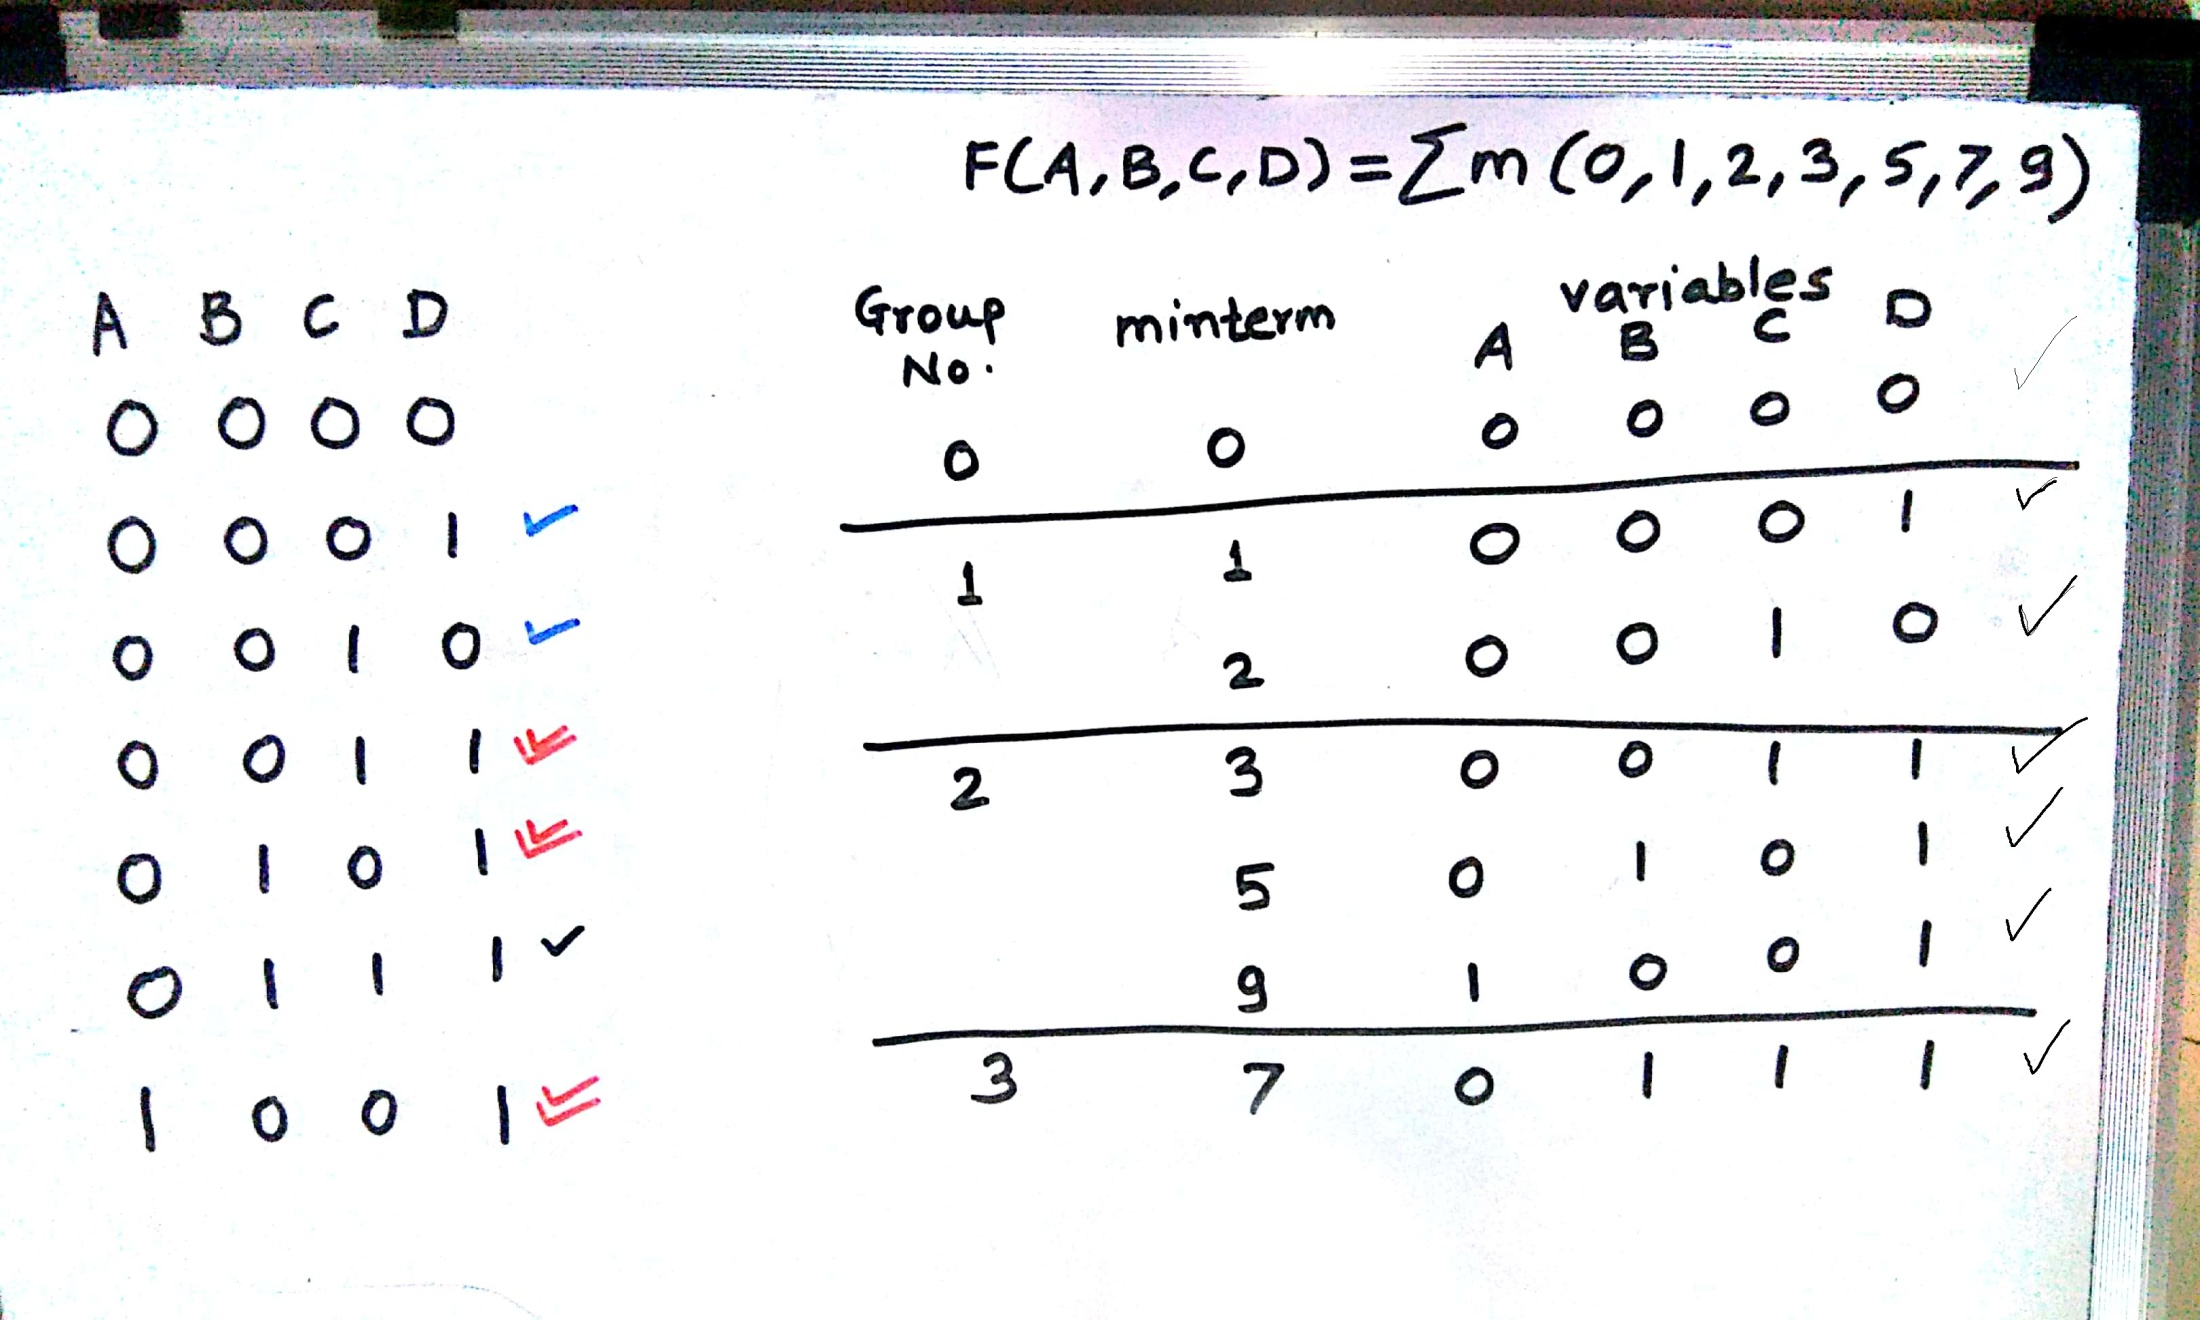 F(A,B,C,D)=∑m(0,1,2,3,5,7,9)
A B C D
0 0 0 0
0 0 0 1 ✓
0 0 1 0 ✓
0 0 1 1 ✓✓
0 1 0 1 ✓✓
0 1 1 1 ✓
1 0 0 1 ✓✓
Group No. minterm variables
A B C D
0 0 0 0 0 0 ✓
1 1 0 0 0 1 ✓
2 0 0 1 0 ✓
2 3 0 0 1 1 ✓
5 0 1 0 1 ✓
9 1 0 0 1 ✓
3 7 0 1 1 1 ✓